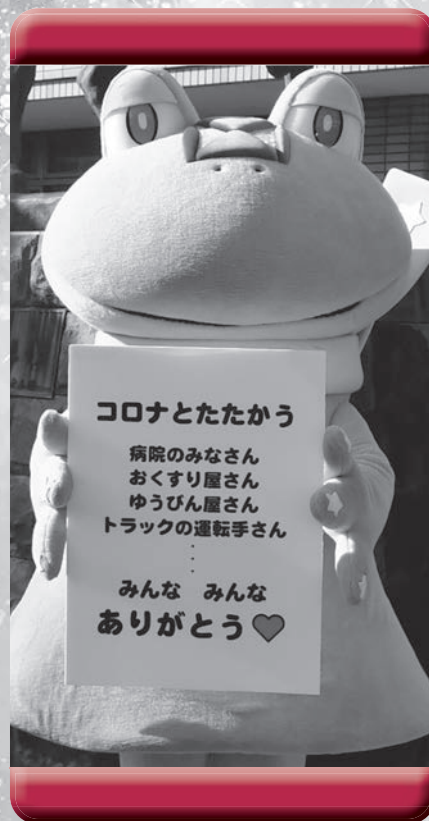 コロナとたたかう
病院のみなさん
おくすり屋さん
ゆうびん屋さん
トラックの運転手さん
・
・
・
みんな みんな
ありがとう♥